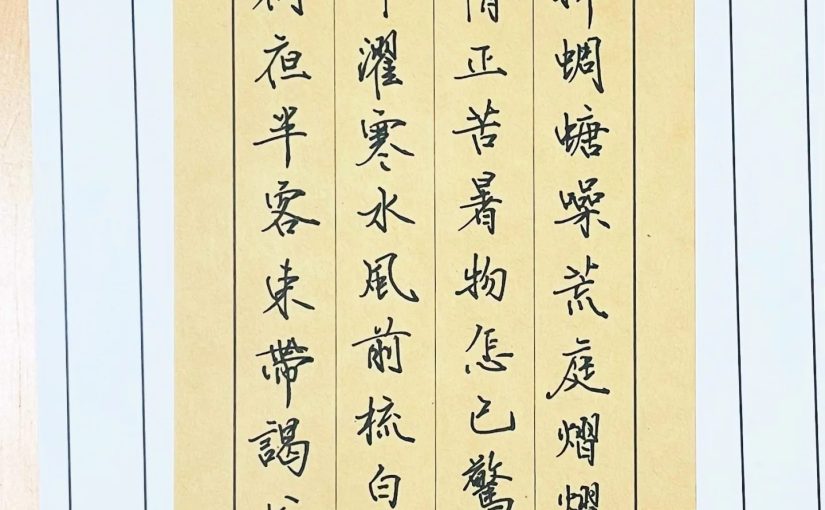 蜩螗噪荒庭熠燿
情正苦暑物怎已驚
濯寒水風前梳白
何夜半客束帶謁